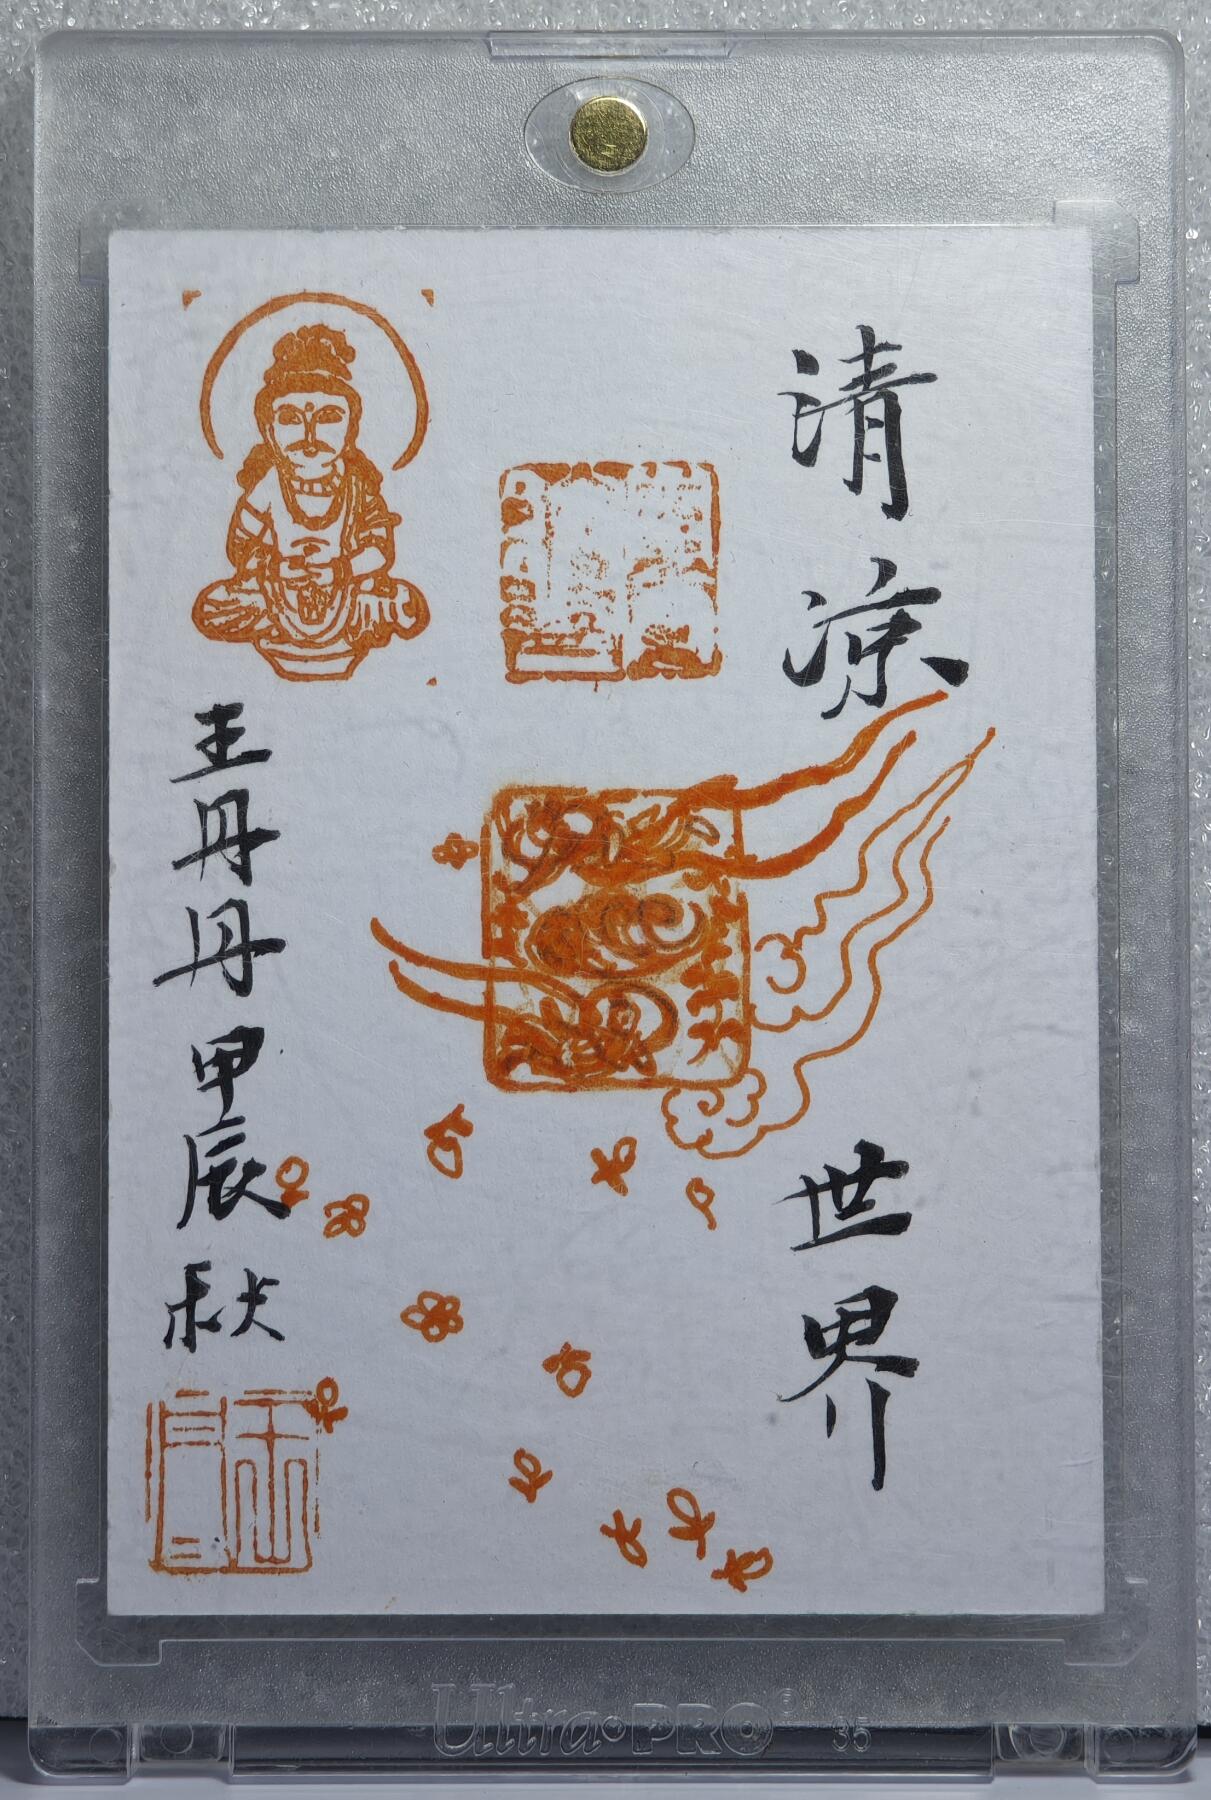 清凉世界
王丹丹甲辰秋
Ultra·PRO® 35